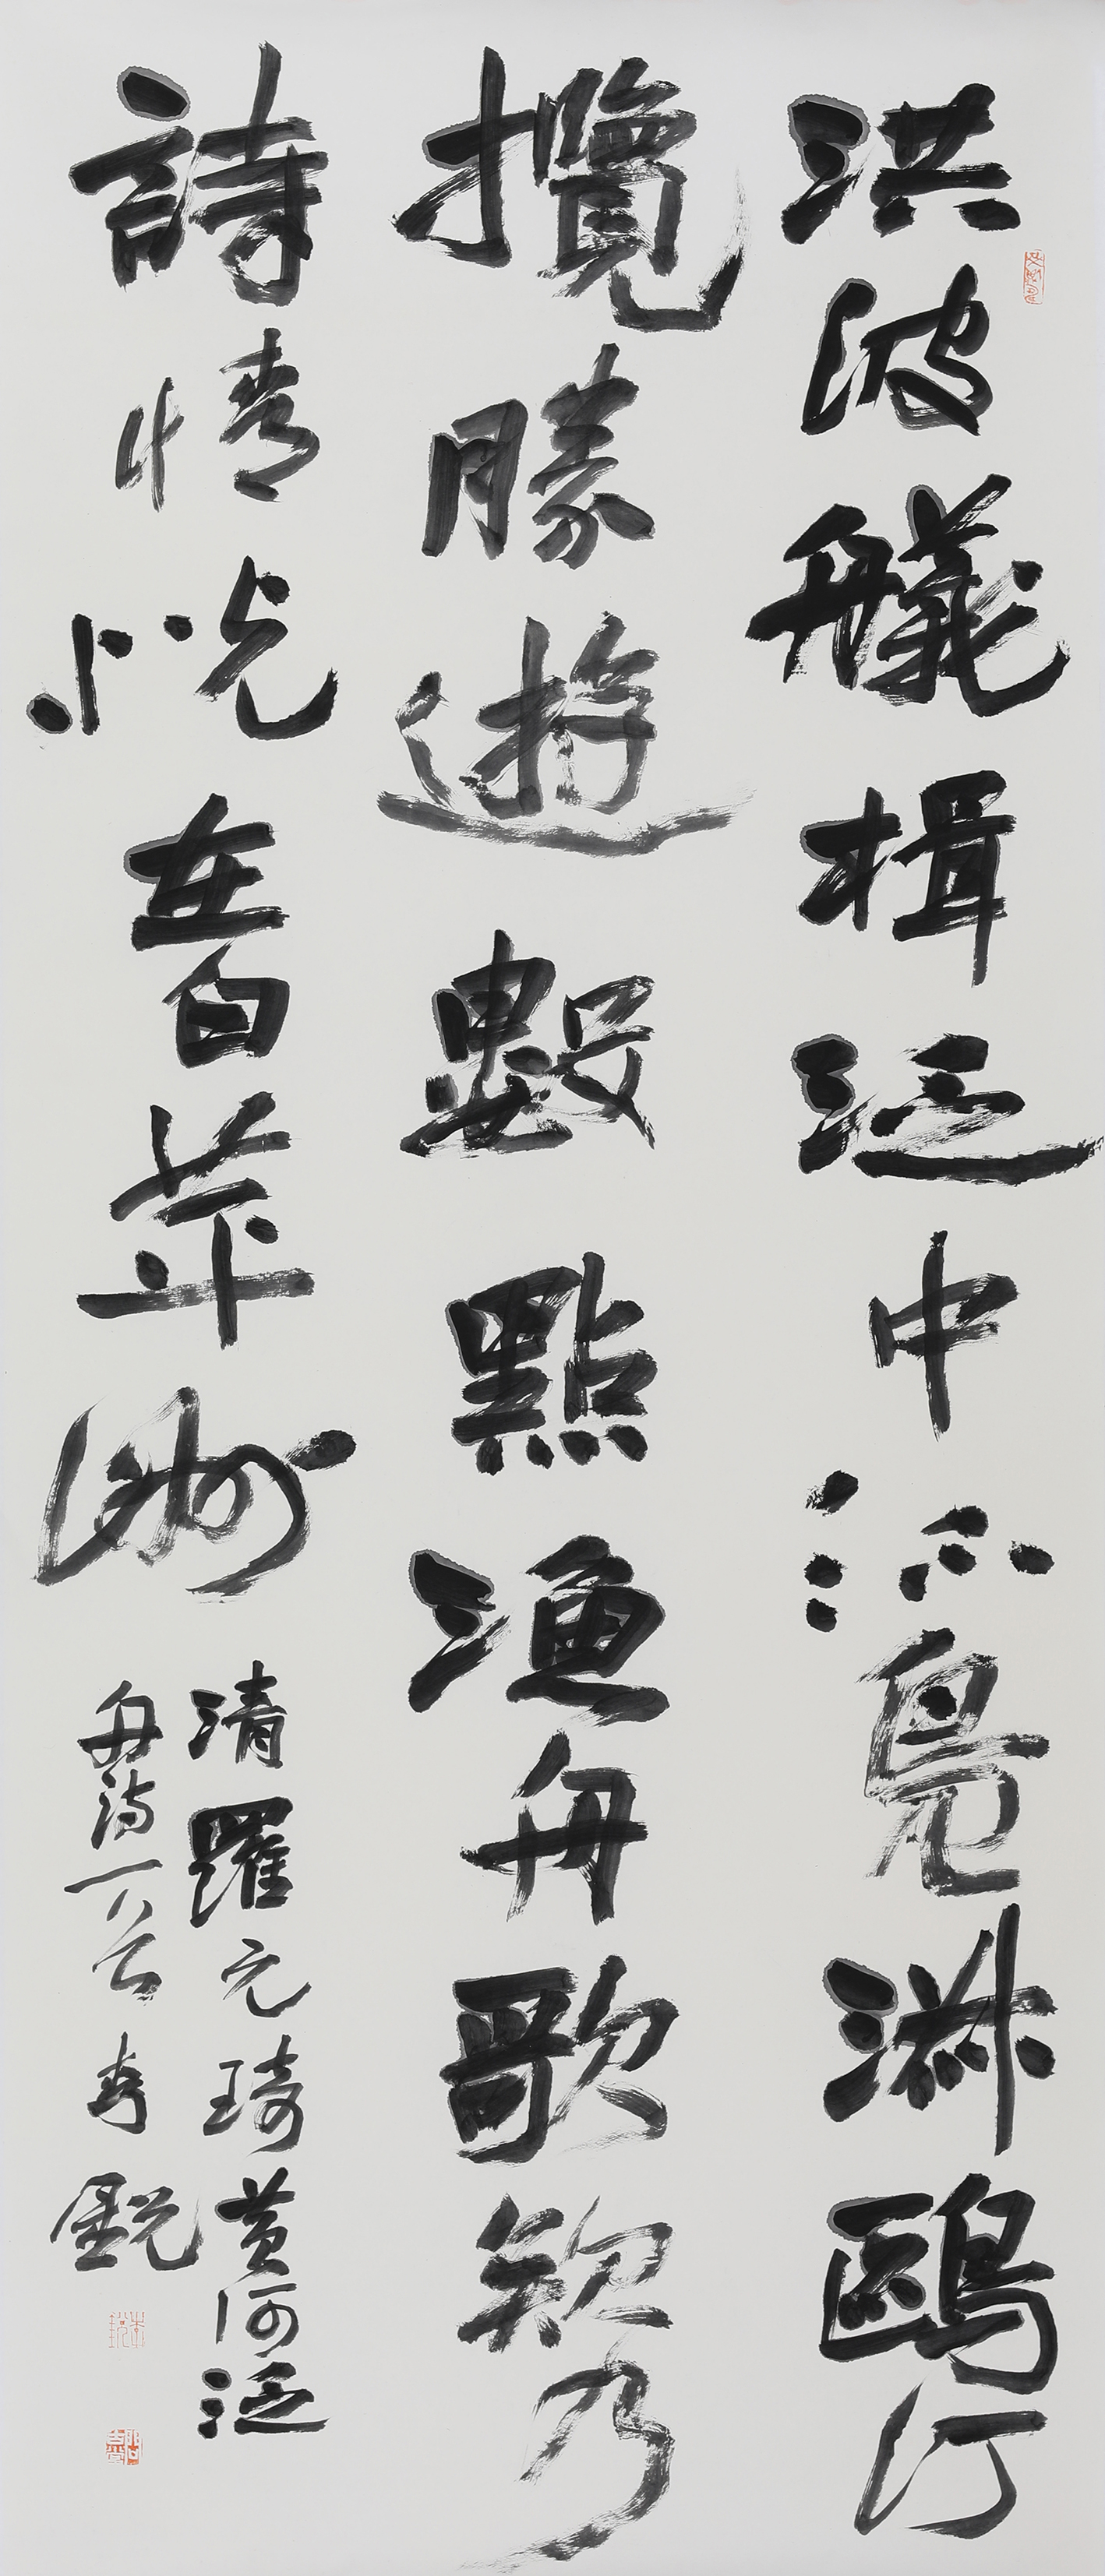 洪波艤楫泛中流鳧渚鷗汀
攬勝遊數點漁舟歌欸乃
詩情恍在白苹洲
清羅元琦黃河泛
舟詩一首 銳